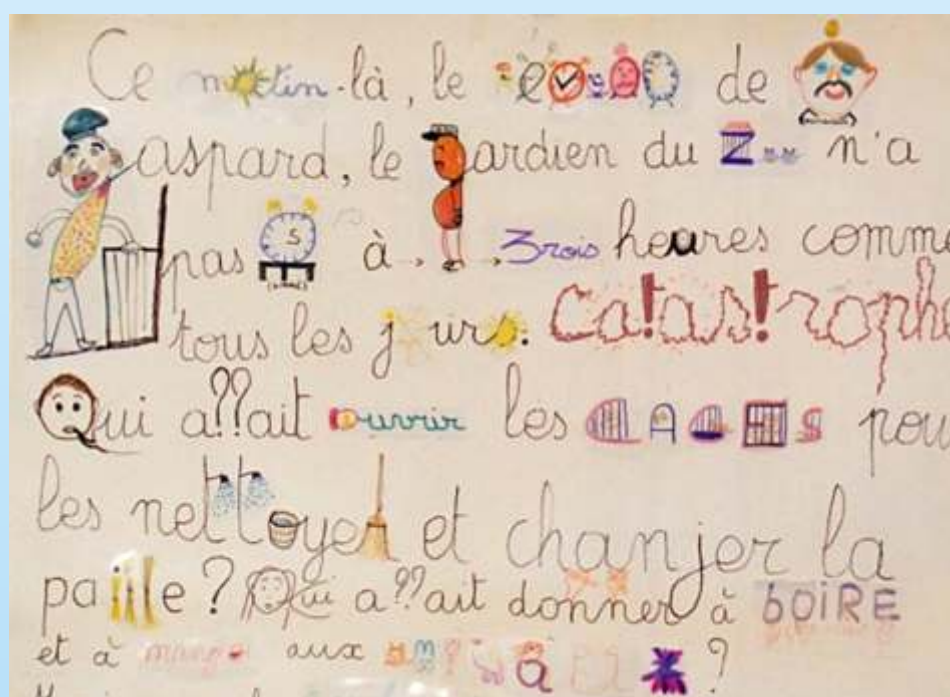 Ce matin-là, le réveil de
Gaspard, le gardien du Zoo n'a
pas à 3rois heures comme
tous les jours. Catastroph
Qui a??ait ouvrir les CAGES pou
les nettoyer et chanjer la
paille ? Qui a??ait donner à BOIRE
et à manger aux ?